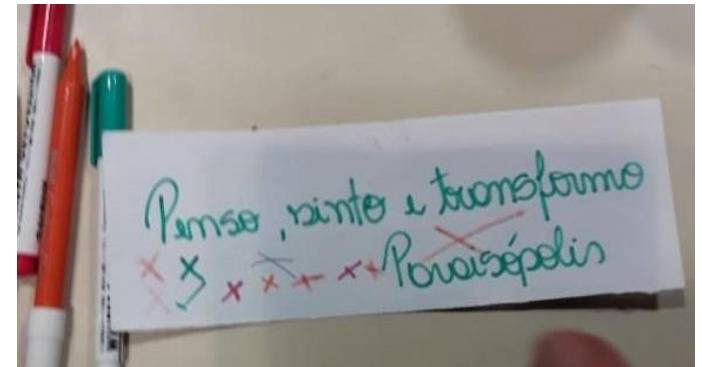 Penso, sinto e transformo
Paraisópolis